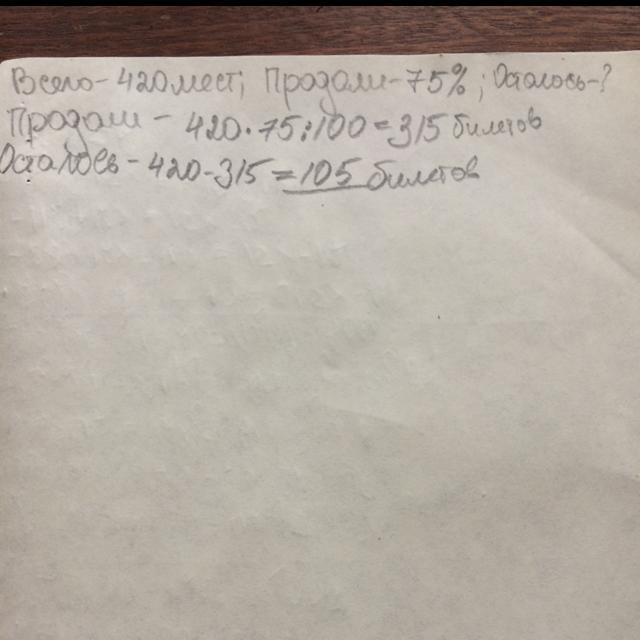 Всего-420 мест; Продали-75%; Осталось-?
Продали - 420·75:100=315 билетов
Осталось-420-315=105 билетов